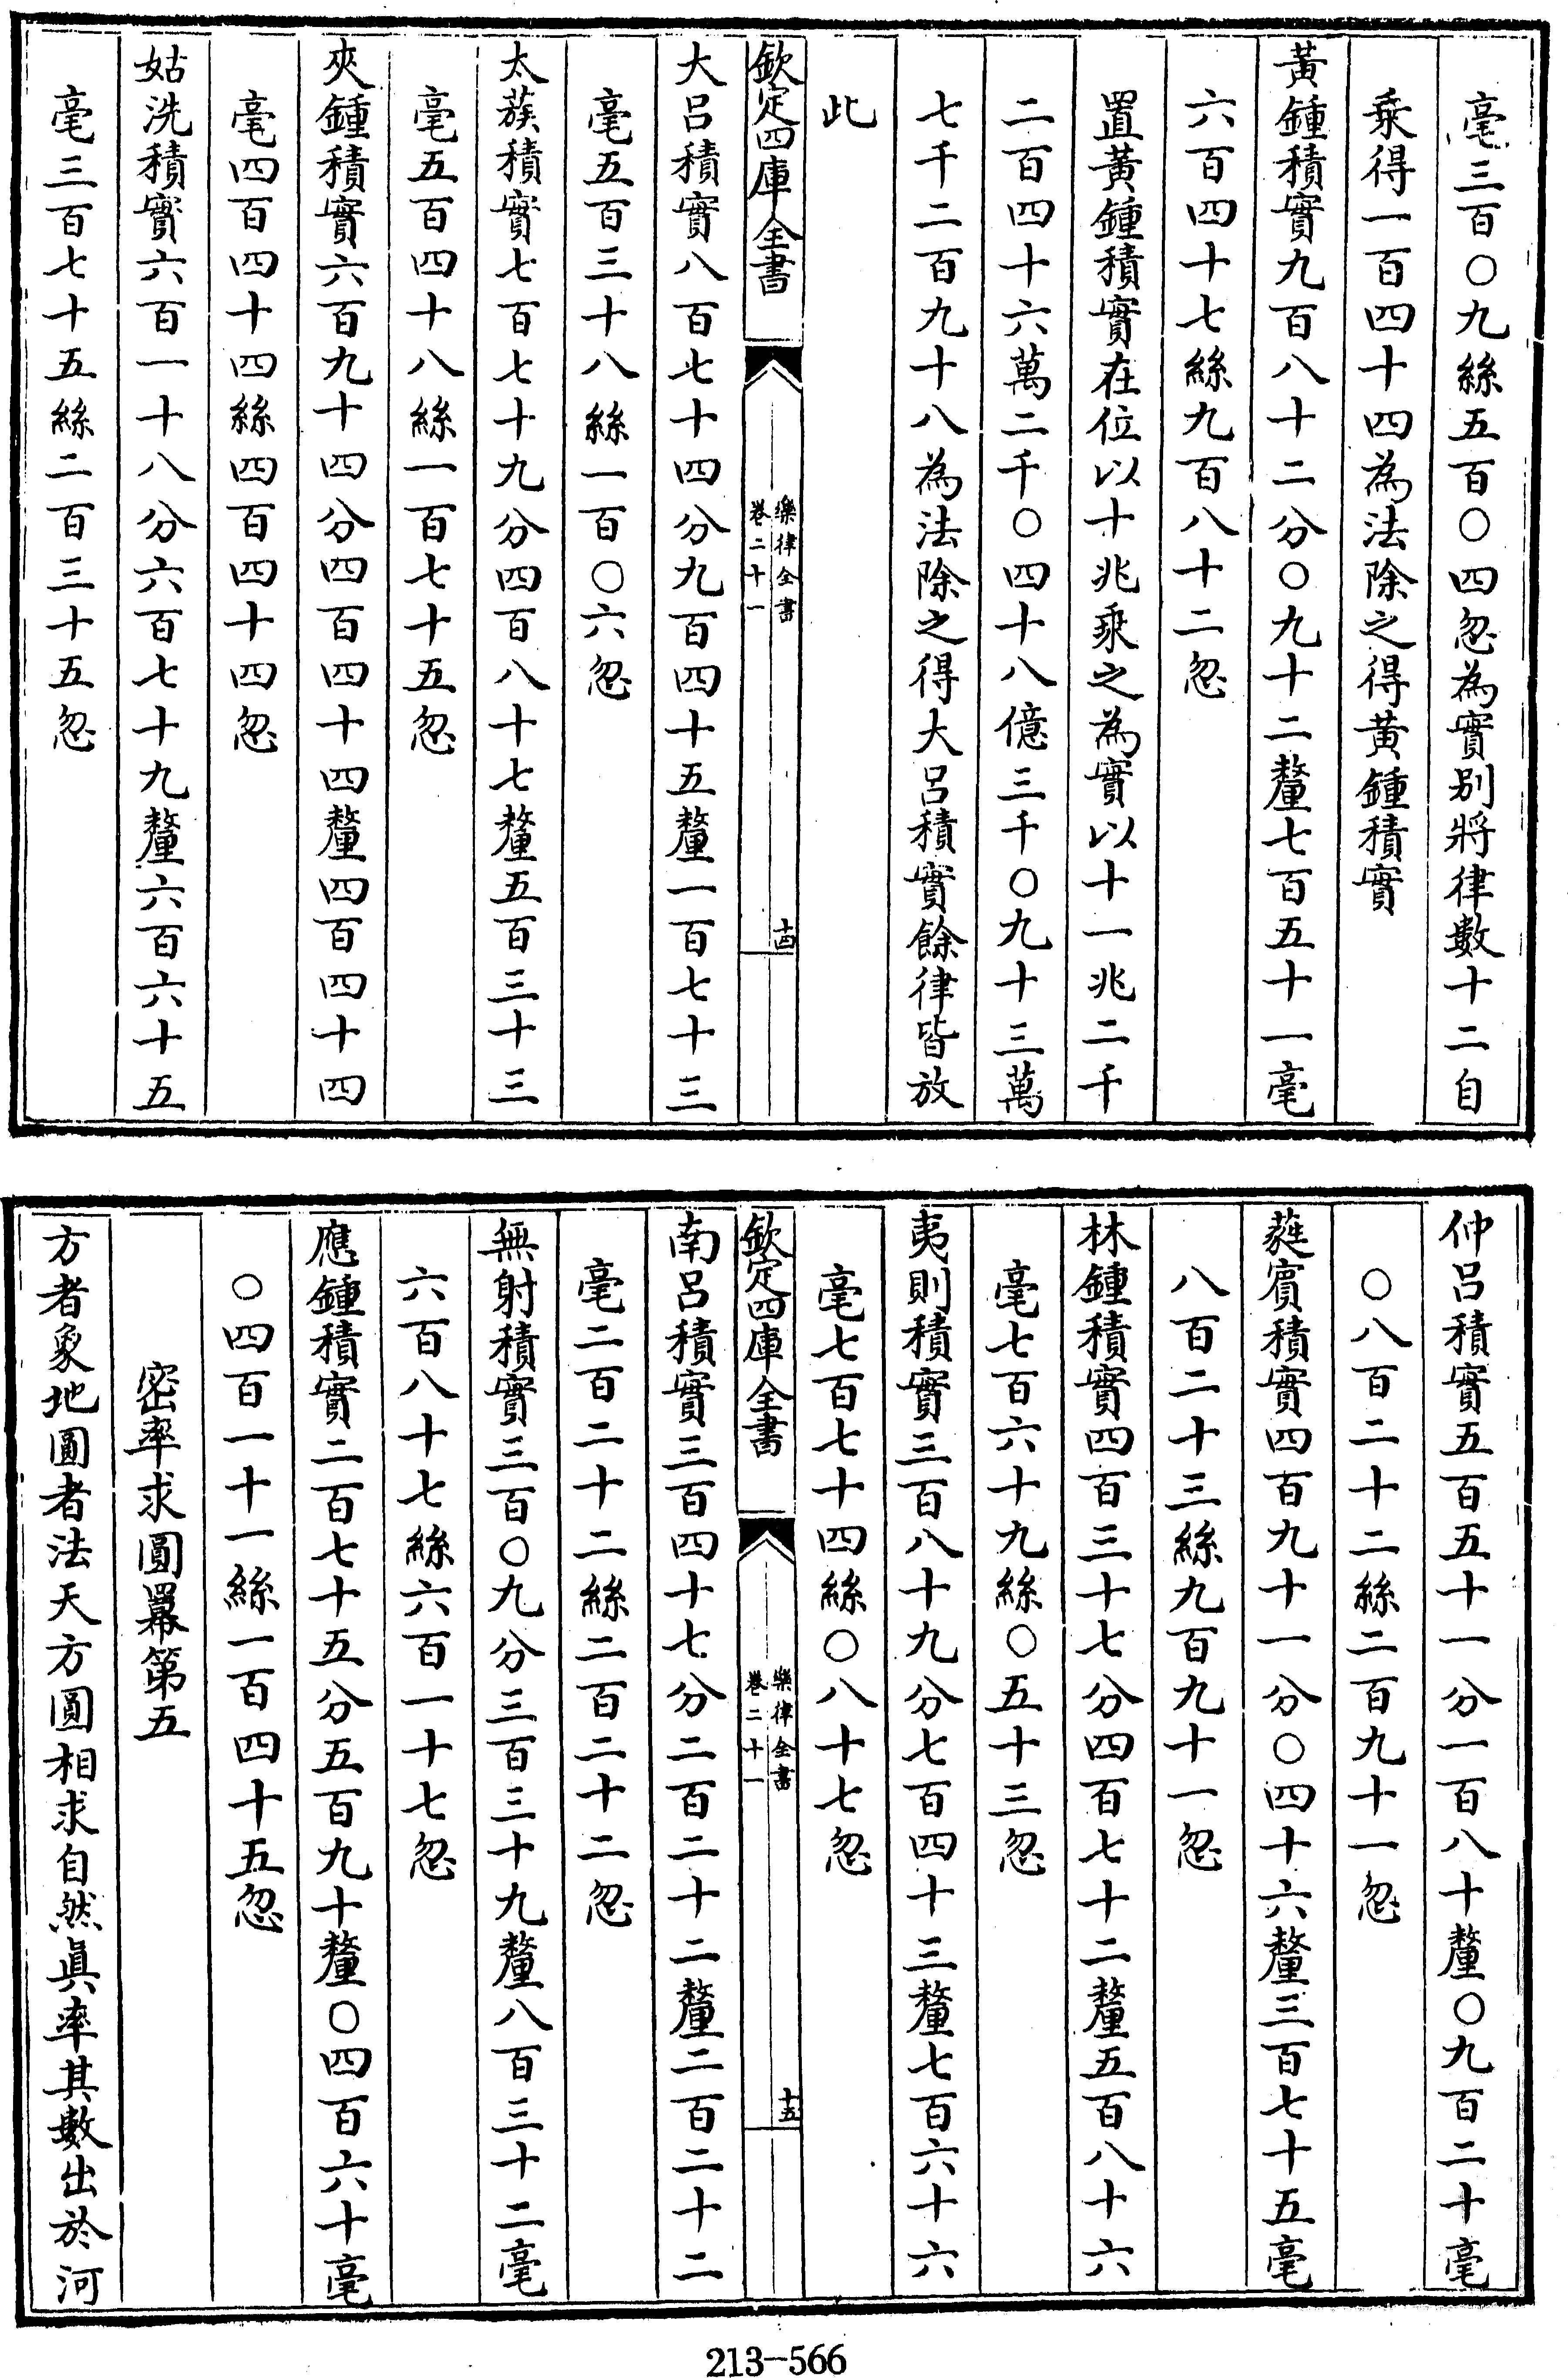 毫三百〇九絲五百〇四忽為實别將律數十二自
乗得一百四十四為法除之得黃鍾積實
黃鍾積實九百八十二分〇九十二釐七百五十一毫
六百四十七絲九百八十二忽
置黃鍾積實在位以十兆乘之為實以十一兆二千
二百四十六萬二千〇四十八億三千〇九十三萬
七千二百九十八為法除之得大呂積實餘律皆放
此
欽定四庫全書
樂律全書
卷二十一
十四
大呂積實八百七十四分九百四十五釐一百七十三
毫五百三十八絲一百〇六忽
太蔟積實七百七十九分四百八十七釐五百三十三
毫五百四十八絲一百七十五忽
夾鍾積實六百九十四分四百四十四釐四百四十四
毫四百四十四絲四百四十四忽
姑洗積實六百一十八分六百七十九釐六百六十五
毫三百七十五絲二百三十五忽
仲呂積實五百五十一分一百八十釐〇九百二十毫
〇八百二十二絲二百九十一忽
蕤賓積實四百九十一分〇四十六釐三百七十五毫
八百二十三絲九百九十一忽
林鍾積實四百三十七分四百七十二釐五百八十六
毫七百六十九絲〇五十三忽
夷則積實三百八十九分七百四十三釐七百六十六
毫七百七十四絲〇八十七忽
欽定四庫全書
樂律全書
卷二十一
十五
南呂積實三百四十七分二百二十二釐二百二十二
毫二百二十二絲二百二十二忽
無射積實三百〇九分三百三十九釐八百三十二毫
六百八十七絲六百一十七忽
應鍾積實二百七十五分五百九十釐〇四百六十毫
〇四百一十一絲一百四十五忽
密率求圓冪第五
方者象地圓者法天方圓相求自然眞率其數出於河
213-566